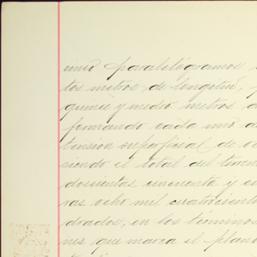 uno paralelógramos
tos metros de longitud, y
quince y medio metros de
formando cada uno
tensión superficial de
siendo el total del terreno
doscientas cincuenta y
ras ocho mil cuatrocientos
drados, en los términos
nes que marca el plano